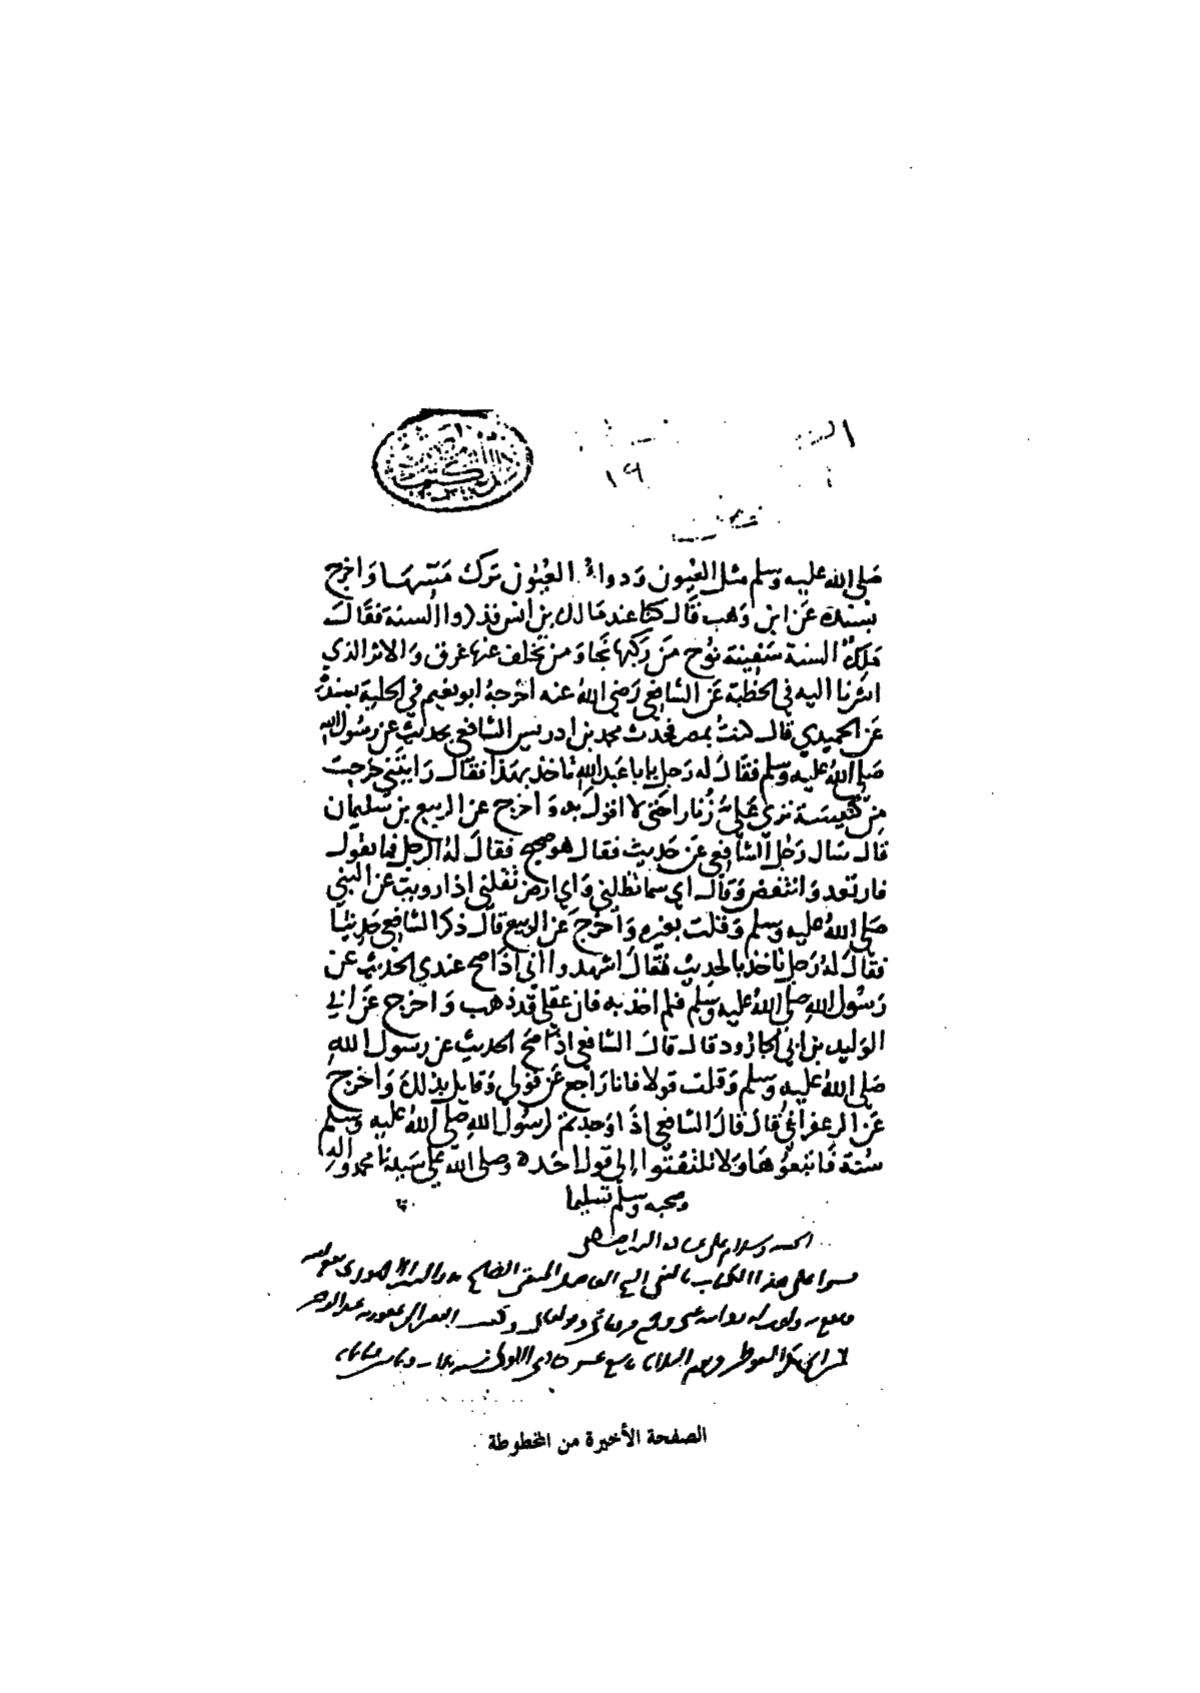 ١٩
صلى الله عليه وسلم مثل العيون ودواء العيون ترك مسها واخرج
بسنده عن ابن وهب قال كنا عند مالك بن انس فذكروا السنة فقال
ملك السنة سفينة نوح من ركبها نجا ومن تخلف عنها غرق والاثر الذي
اشرنا اليه في الخطبة عن الشافعي رضي الله عنه اخرجه ابو نعيم في الحلية بسنده
عن الحميدي قال كنت بمصر فحدث محمد بن ادريس الشافعي بحديث عن رسول الله
صلى الله عليه وسلم فقال له رجل يابا عبد الله تاخذ بهذا فقال رايتني خرجت
من كنيسة ترى علي زنارا حتى لا اقول به واخرج عن الربيع بن سليمان
قال سال رجل الشافعي عن حديث فقال هو صحيح فقال له الرجل فما يقول
فارتعد وانتفض وقال اي سما تظلني واي ارض تقلني اذا رويت عن النبي
صلى الله عليه وسلم وقلت بغيره واخرج عن الربيع قال ذكر الشافعي حديثا
فقال له رجل تاخذ بالحديث فقال اشهدوا اني اذا صح عندي الحديث عن
رسول الله صلى الله عليه وسلم فلم اخذ به فان عقلي قد ذهب واخرج عن ابي
الوليد بن ابي الجارود قال قال الشافعي اذا صح الحديث عن رسول الله
صلى الله عليه وسلم وقلت قولا فانا راجع عن قولي وقايل بذلك واخرج
عن الزعفراني قال قال الشافعي اذا وجدتم لرسول الله صلى الله عليه وسلم
سنة فاتبعوها ولا تلتفتوا إلى قول احد وصلى الله على سيدنا محمد واله
وصحبه وسلم تسليما
الحمد لله وسلام على عباده الذين اصطفى
هذا الكتاب الشيخ الفاضل
وكتب عبد الرحمن
بن ابي بكر السيوطي تاسع عشر جمادى الاولى سنة
الصفحة الأخيرة من المخطوطة